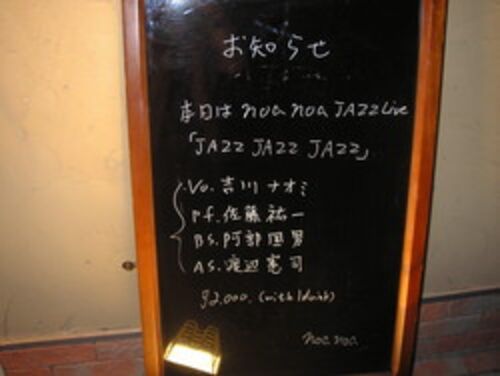 お知らせ
本日は noa noa JAZZ Live
「JAZZ JAZZ JAZZ」
Vo. 吉川ナオミ
Pf. 佐藤祐一
Bs. 阿部国男
AS. 渡辺憲司
¥2,000. (with 1drink)
noa noa